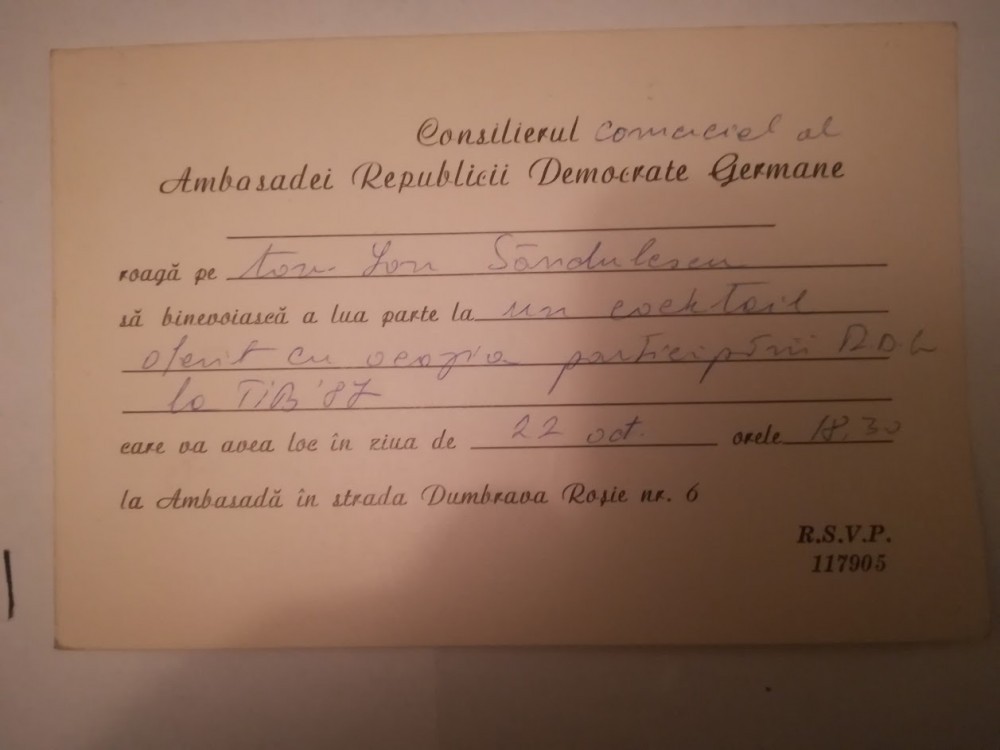 Consilierul comercial al
Ambasadei Republicii Democrate Germane
roagă pe tov. Ion Săndulescu
să binevoiască a lua parte la un cocktail
oferit cu ocazia participării R.D.G.
la TIB '87
care va avea loc în ziua de 22 oct. orele 18.30
la Ambasadă în strada Dumbrava Roșie nr. 6
R.S.V.P.
117905